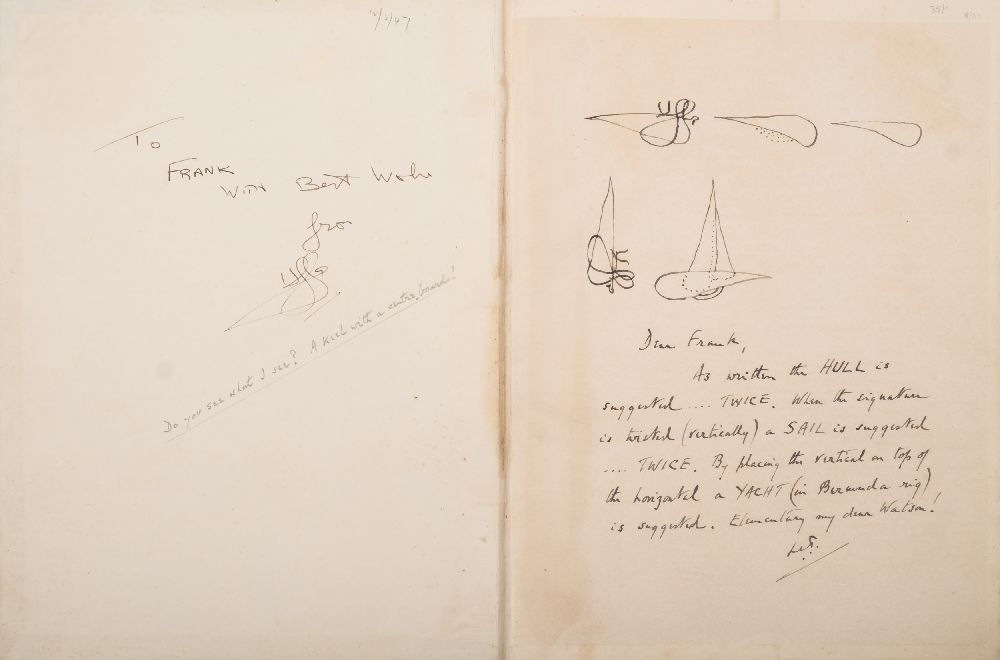 2/2/47
To
FRANK
WITH Best Wishes
from
Uffa
Do you see what I see? A keel with a centre board!
35/-
Uffa
Dear Frank,
As written the HULL is
suggested .... TWICE. When the signature
is twisted (vertically) a SAIL is suggested
.... TWICE. By placing the vertical on top of
the horizontal a YACHT (in Bermuda rig)
is suggested. Elementary my dear Watson!